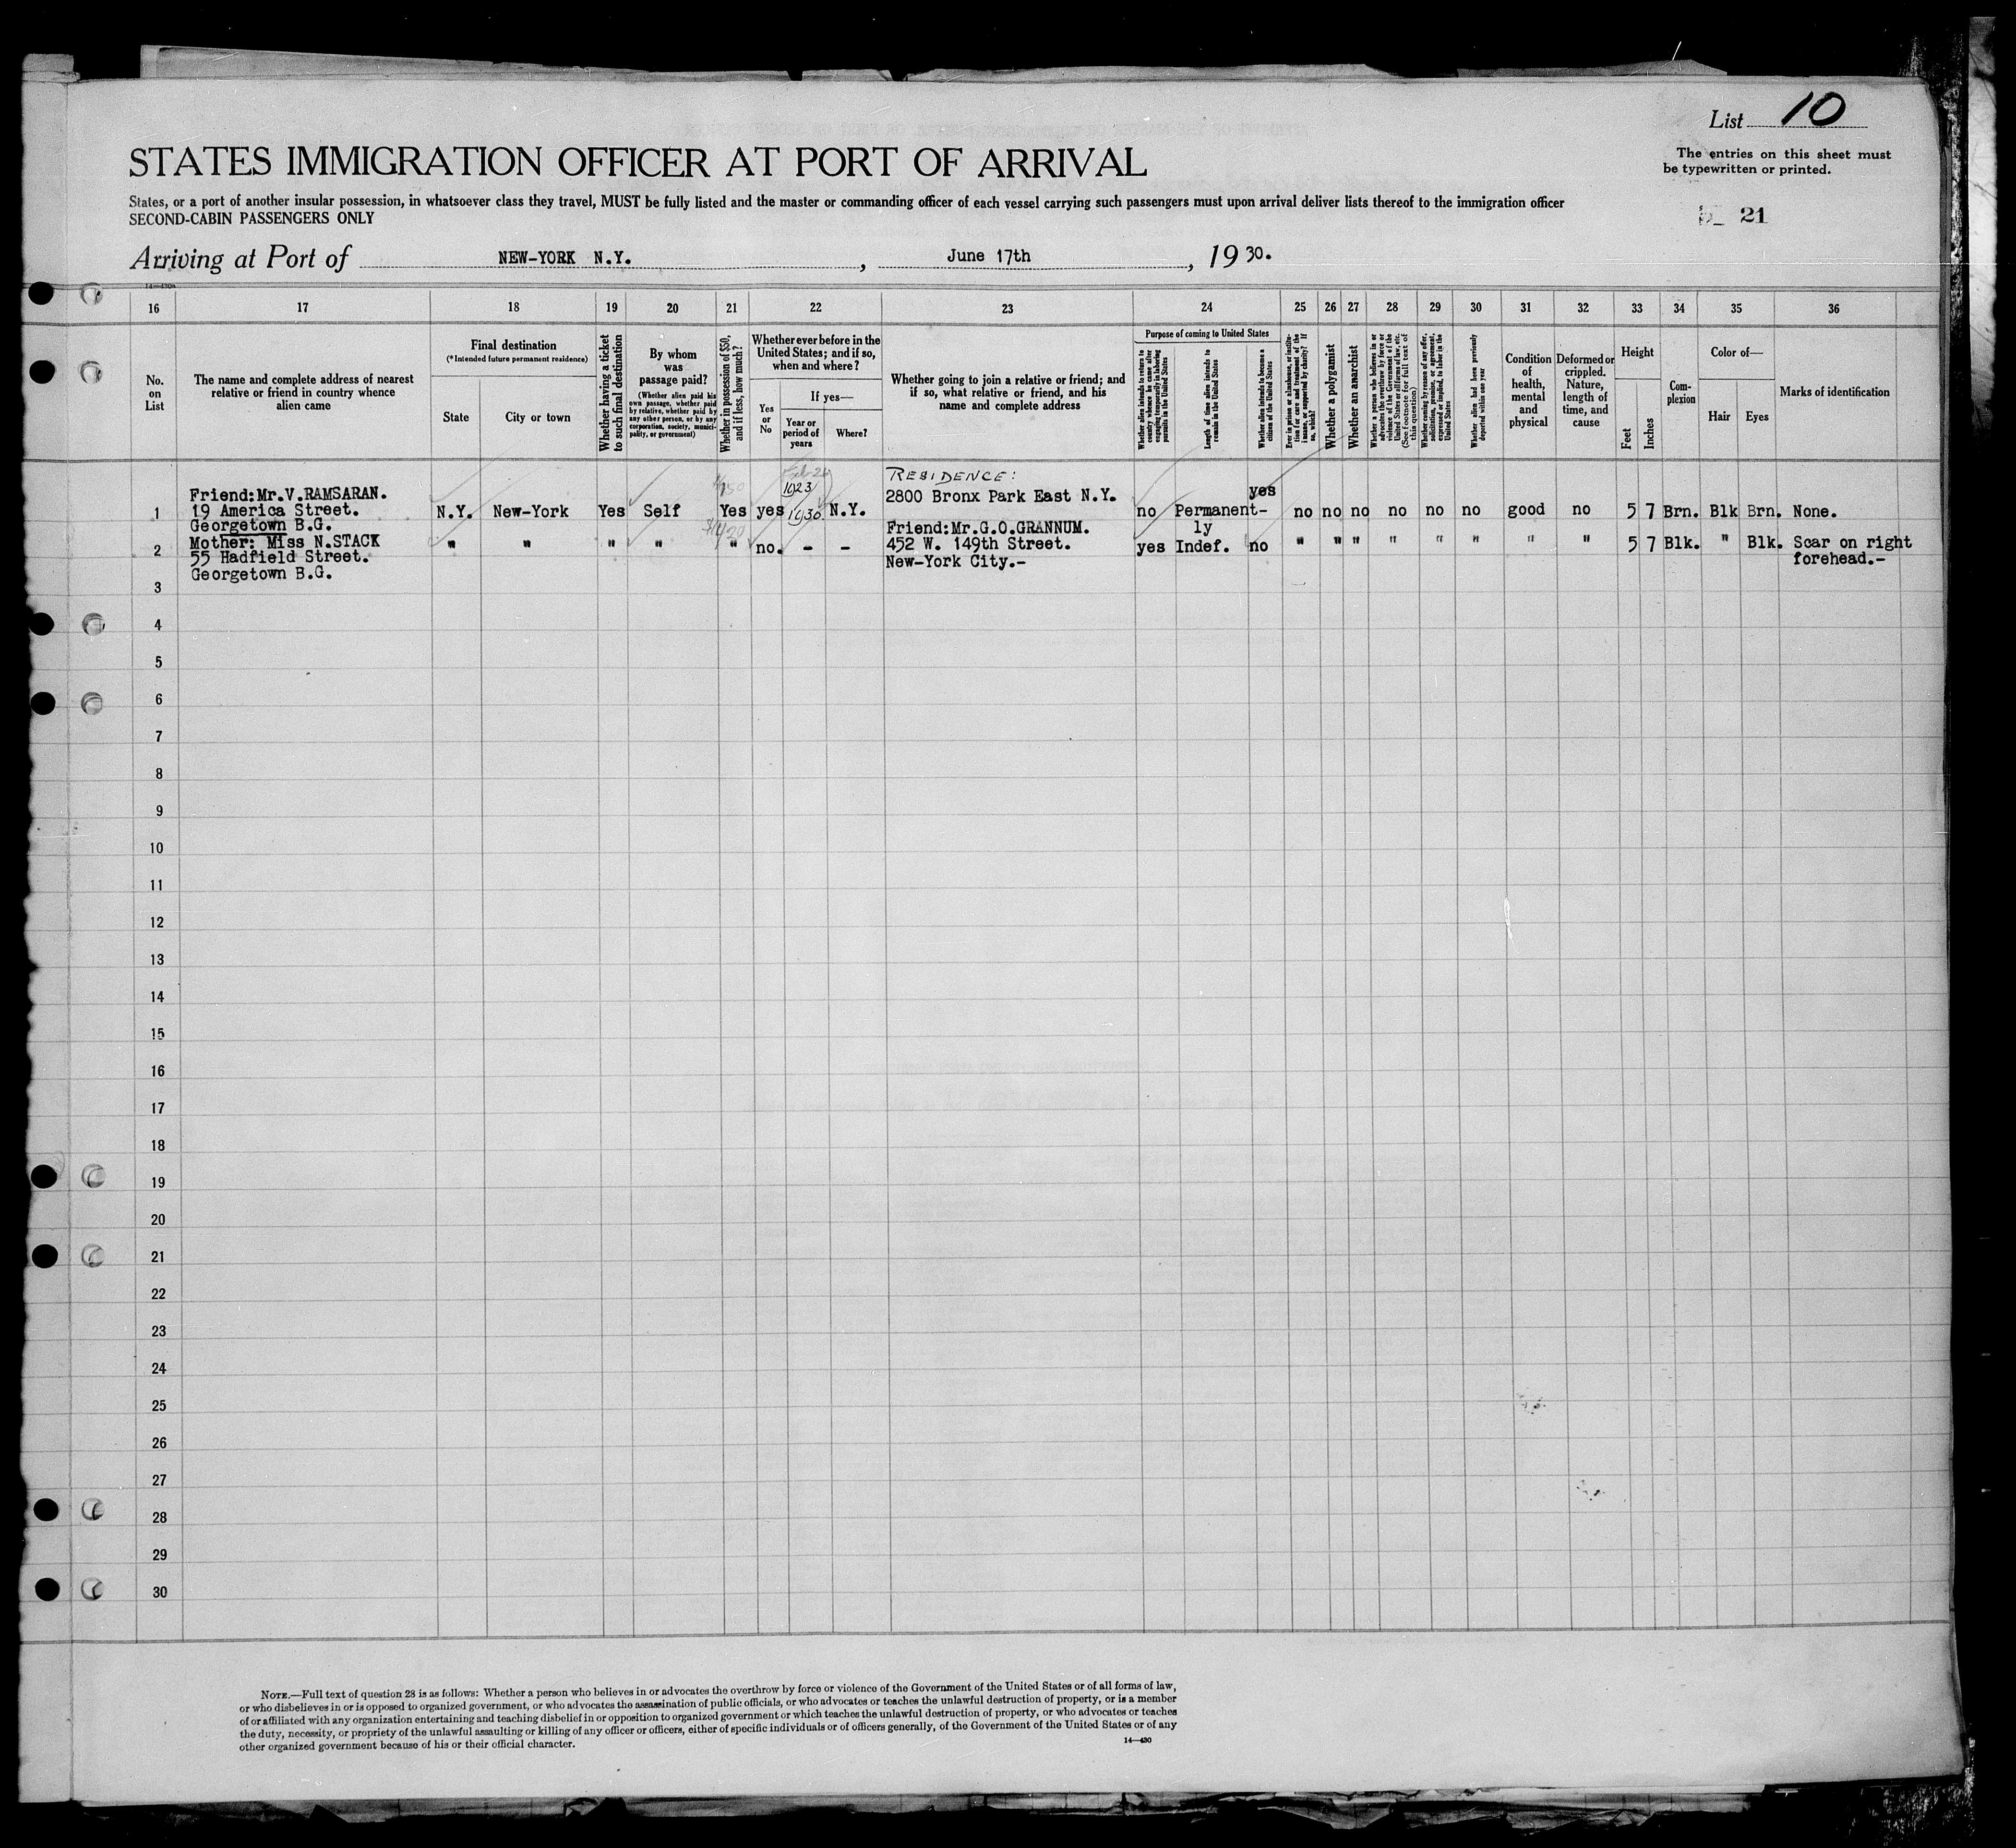 List 10
The entries on this sheet must
be typewritten or printed.
21
STATES IMMIGRATION OFFICER AT PORT OF ARRIVAL
States, or a port of another insular possession, in whatsoever class they travel, MUST be fully listed and the master or commanding officer of each vessel carrying such passengers must upon arrival deliver lists thereof to the immigration officer
SECOND-CABIN PASSENGERS ONLY
Arriving at Port of NEW-YORK N.Y. , June 17th , 19 30.
16 17 18 19 20 21 22 23 24 25 26 27 28 29 30 31 32 33 34 35 36
No.
on
List
The name and complete address of nearest
relative or friend in country whence
alien came
Final destination
(*Intended future permanent residence)
State
City or town
Whether having a ticket
to such final destination
By whom
was
passage paid?
(Whether alien paid his
own passage, whether paid
by relative, whether paid by
any other person, or by any
corporation, society, munici-
pality, or government)
Whether in possession of $50,
and if less, how much?
Whether ever before in the
United States; and if so,
when and where?
Yes
or
No
If yes—
Year or
period of
years
Where?
Whether going to join a relative or friend; and
if so, what relative or friend, and his
name and complete address
Purpose of coming to United States
Whether alien intends to return to
country whence he came after
engaging temporarily in laboring
pursuits in the United States
Length of time alien intends to
remain in the United States
Whether alien intends to become a
citizen of the United States
Ever in prison or almshouse, or institu-
tion for care and treatment of the
insane, or supported by charity? If
so, which?
Whether a polygamist
Whether an anarchist
Whether a person who believes in or
advocates the overthrow by force or
violence of the Government of the
United States or all forms of law, etc.
(See footnote for full text of
this question)
Whether coming by reason of any offer,
solicitation, promise, or agreement,
expressed or implied, to labor in the
United States
Whether alien had been previously
deported within one year
Condition
of
health,
mental
and
physical
Deformed or
crippled.
Nature,
length of
time, and
cause
Height
Feet
Inches
Com-
plexion
Color of—
Hair
Eyes
Marks of identification
RESIDENCE:
Friend:Mr.V.RAMSARAN.
19 America Street.
Georgetown B.G.
1 N.Y. New-York Yes Self Yes yes 1923 1930 N.Y. 2800 Bronx Park East N.Y. no Permanent-
ly yes no no no no no no good no 5 7 Brn. Blk Brn. None.
Mother: Miss N.STACK
55 Hadfield Street.
Georgetown B.G.
2 " " " " " no. - - Friend:Mr.G.O.GRANNUM.
452 W. 149th Street.
New-York City.-
yes Indef. no " " " " " " " " 5 7 Blk. " Blk. Scar on right
forehead.-
3
4
5
6
7
8
9
10
11
12
13
14
15
16
17
18
19
20
21
22
23
24
25
26
27
28
29
30
NOTE.—Full text of question 28 is as follows: Whether a person who believes in or advocates the overthrow by force or violence of the Government of the United States or of all forms of law,
or who disbelieves in or is opposed to organized government, or who advocates the assassination of public officials, or who advocates or teaches the unlawful destruction of property, or is a member
of or affiliated with any organization entertaining and teaching disbelief in or opposition to organized government or which teaches the unlawful destruction of property, or who advocates or teaches
the duty, necessity, or propriety of the unlawful assaulting or killing of any officer or officers, either of specific individuals or of officers generally, of the Government of the United States or of any
other organized government because of his or their official character.
14—430